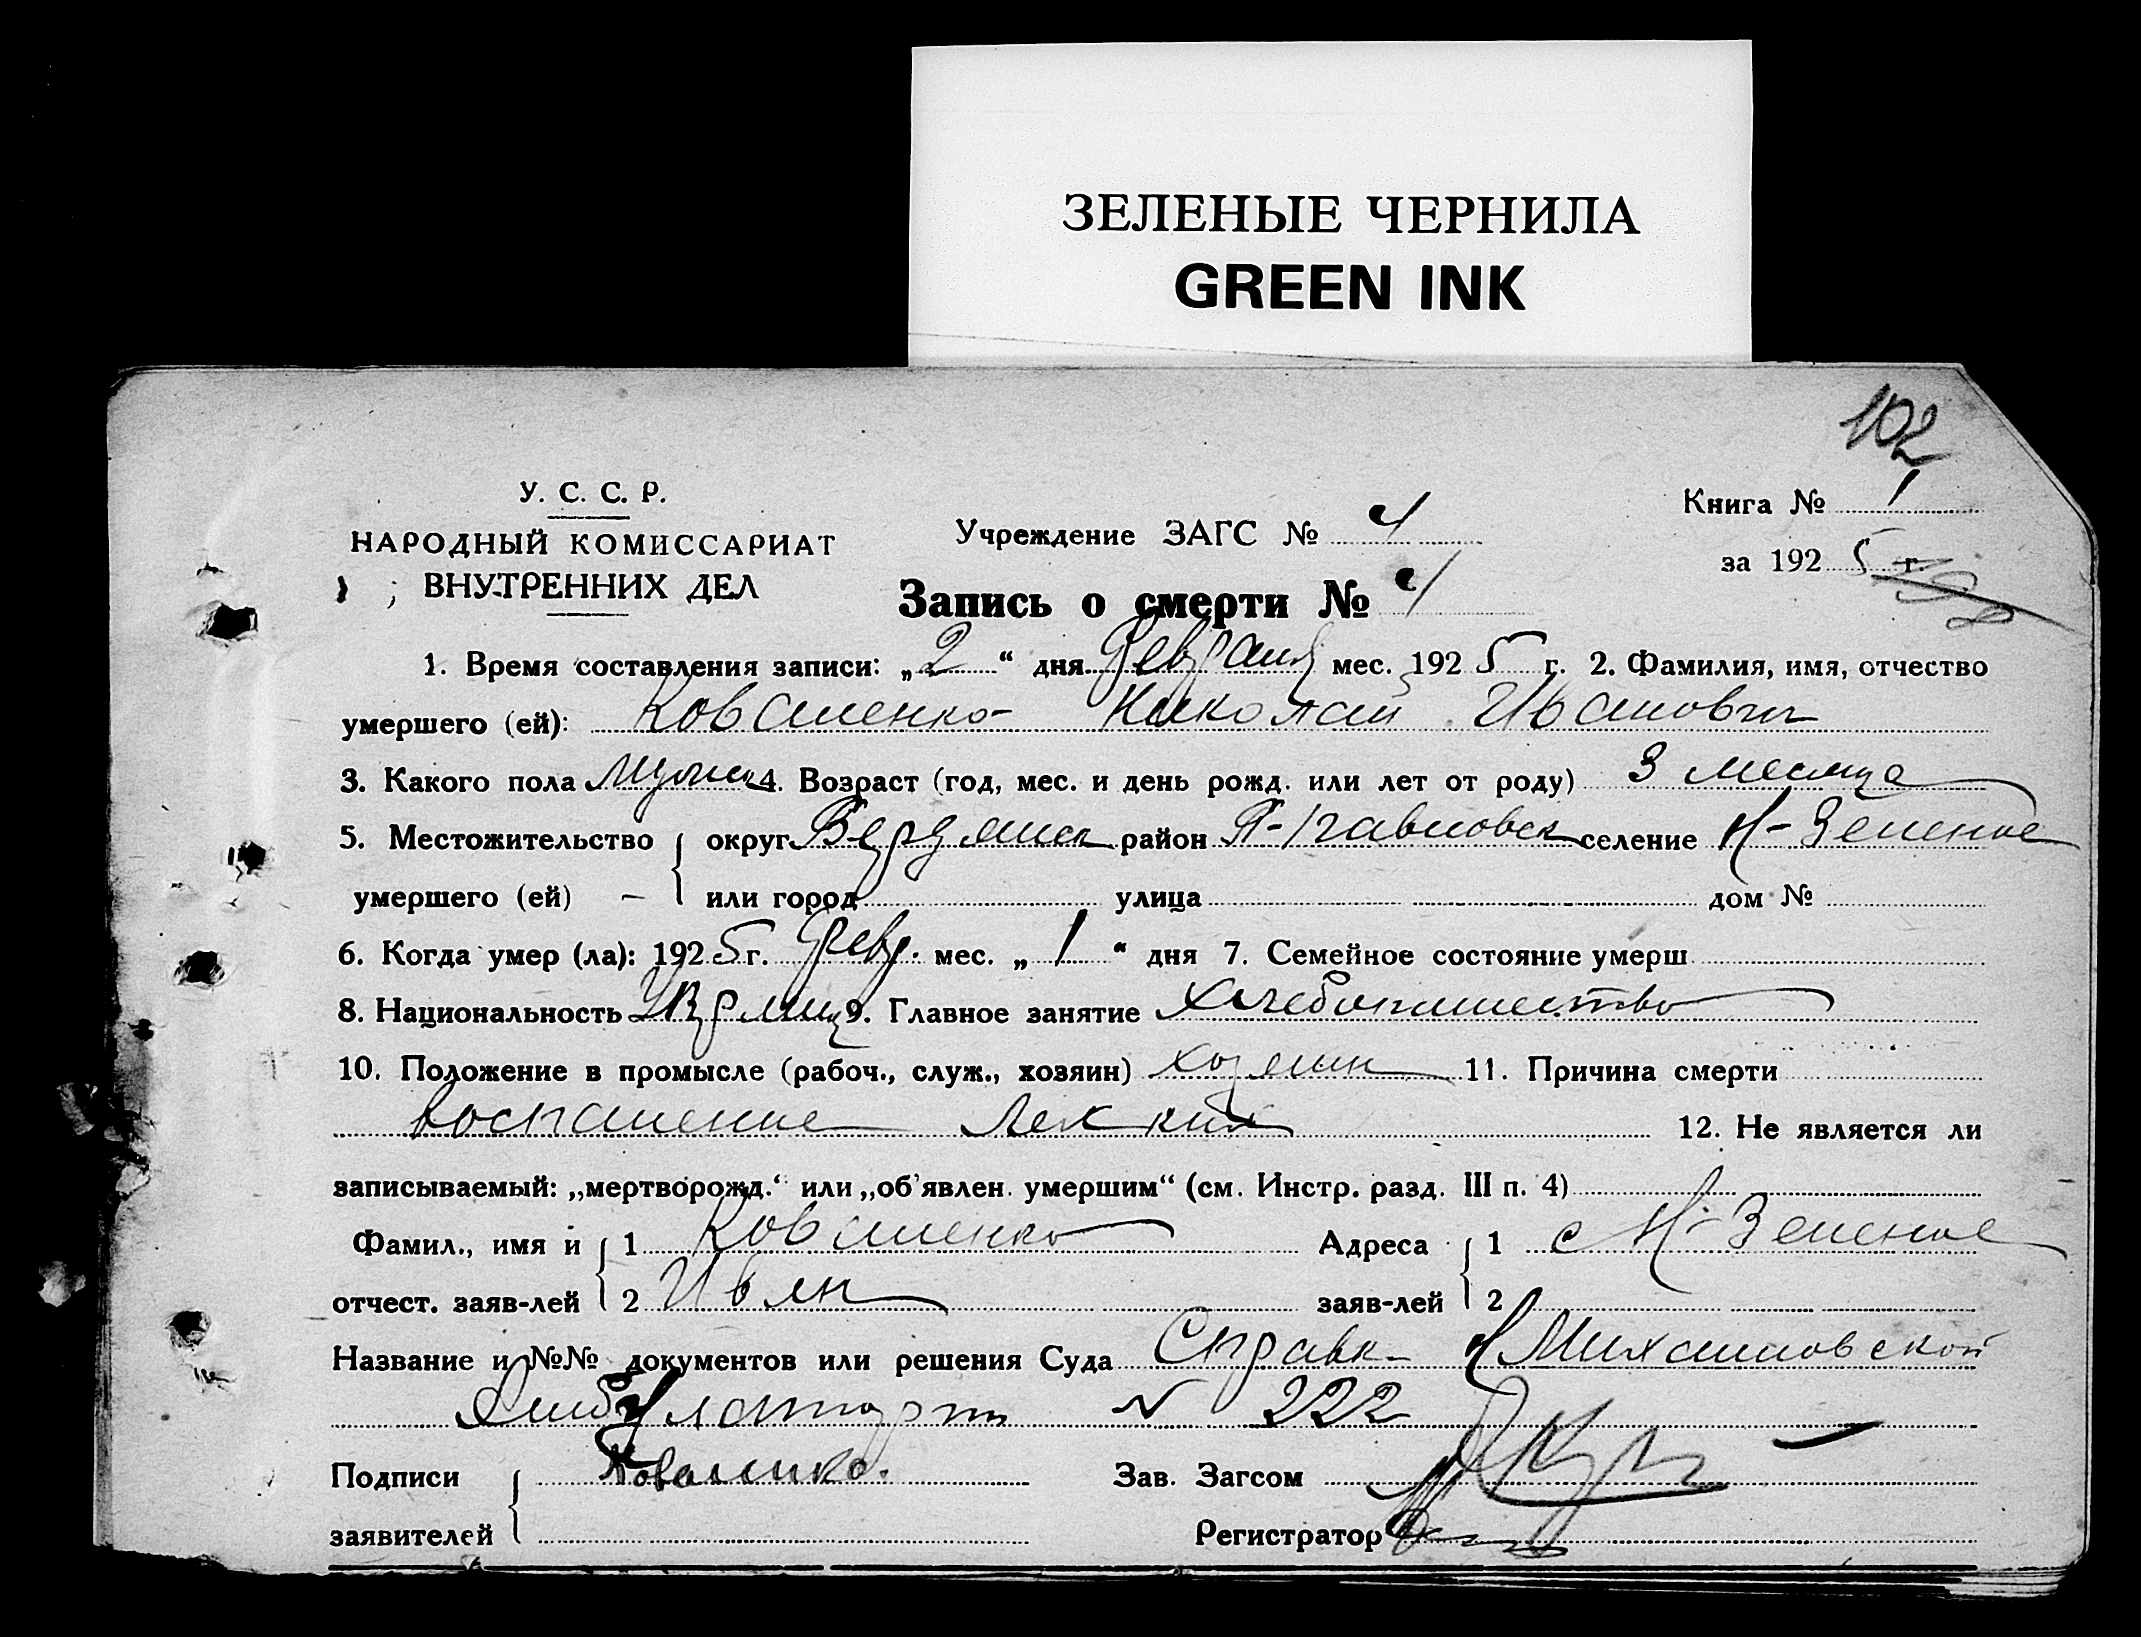 ЗЕЛЕНЫЕ ЧЕРНИЛА
GREEN INK
102
У. С. С. Р.
НАРОДНЫЙ КОМИССАРИАТ
ВНУТРЕННИХ ДЕЛ
Учреждение ЗАГС № 4
Книга № 1
за 1925 г.
Запись о смерти № 4
1. Время составления записи: „2“ дня Февраля мес. 1925 г. 2. Фамилия, имя, отчество
умершего (ей): Коваленко Николай Иванович
3. Какого пола мужск 4. Возраст (год, мес. и день рожд. или лет от роду) 3 месяца
5. Местожительство округ район селение Н-Зеленое
умершего (ей) – или город улица дом №
6. Когда умер (ла): 1925 г. Февр. мес. „1“ дня 7. Семейное состояние умерш
8. Национальность 9. Главное занятие хлебопашество
10. Положение в промысле (рабоч., служ., хозяин) хозяин 11. Причина смерти
воспаление легких 12. Не является ли
записываемый: „мертворожд.“ или „об'явлен. умершим“ (см. Инстр. разд. III п. 4)
Фамил., имя и 1 Коваленко Адреса 1 с Н-Зеленое
отчест. заяв-лей 2 Иван заяв-лей 2
Название и №№ документов или решения Суда Справк Михайловской
Амбулатории N 222
Подписи Коваленко. Зав. Загсом
заявителей Регистратор